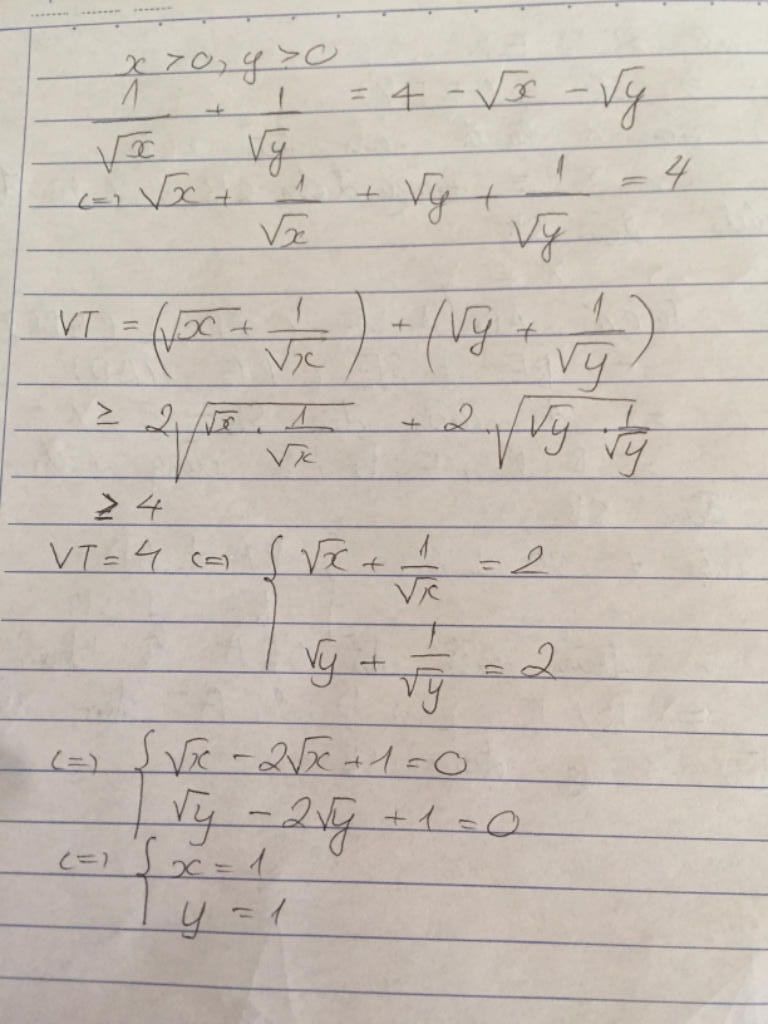 x > 0, y > 0
1/√x + 1/√y = 4 - √x - √y
<=> √x + 1/√x + √y + 1/√y = 4
VT = (√x + 1/√x) + (√y + 1/√y)
≥ 2√(√x . 1/√x) + 2.√(√y . 1/√y)
≥ 4
VT = 4 <=> { √x + 1/√x = 2
√y + 1/√y = 2
<=> { √x - 2√x + 1 = 0
√y - 2√y + 1 = 0
<=> { x = 1
y = 1